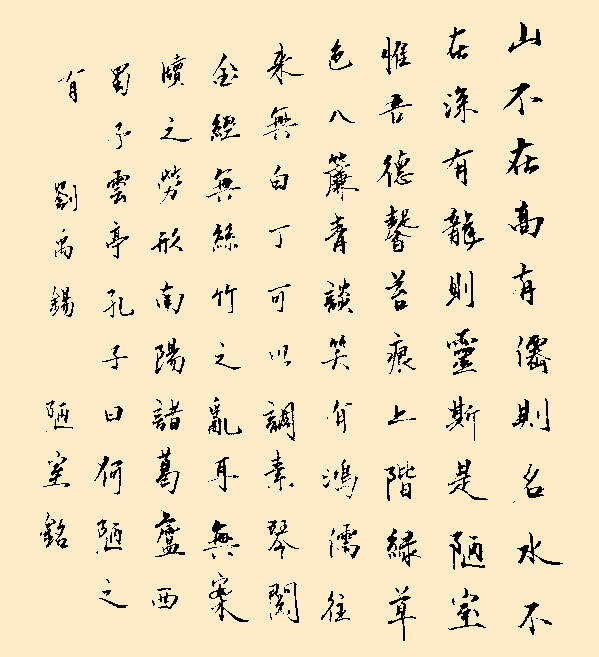 山不在高有僊則名水不
在深有龍則靈斯是陋室
惟吾德馨苔痕上階綠草
色入簾青談笑有鴻儒往
來無白丁可以調素琴閱
金經無絲竹之亂耳無案
牘之勞形南陽諸葛廬西
蜀子雲亭孔子曰何陋之
有
劉禹錫 陋室銘